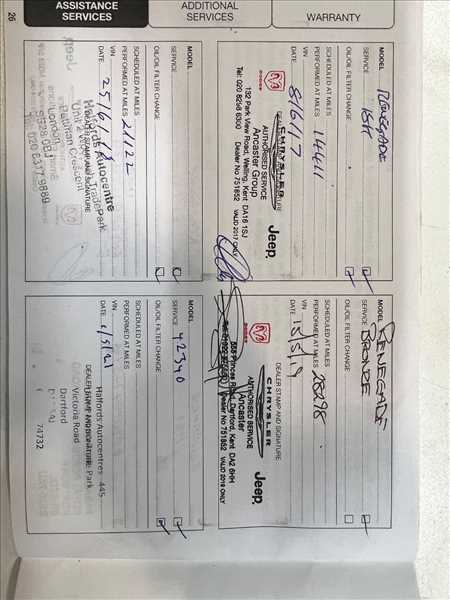 ASSISTANCE
SERVICES
ADDITIONAL
SERVICES
WARRANTY
26
MODEL RENEGADE
SERVICE
OIL/OIL FILTER CHANGE
SCHEDULED AT MILES
PERFORMED AT MILES 14411
VIN
DATE 8/6/17
DEALER STAMP AND SIGNATURE
CHRYSLER
DODGE
Jeep
AUTHORISED SERVICE
Ancaster Group
132 Park View Road, Welling, Kent DA16 1SJ
Tel: 020 8298 6300 Dealer No 751652 VALID 2017 ONLY
MODEL RENEGADE
SERVICE BRONZE
OIL/OIL FILTER CHANGE
SCHEDULED AT MILES
PERFORMED AT MILES 28298
VIN
DATE 15/5/19
DEALER STAMP AND SIGNATURE
CHRYSLER
DODGE
Jeep
AUTHORISED SERVICE
Ancaster
Princes Road, Dartford, Kent DA2 6HH
Dealer No 751652 VALID 2019 ONLY
MODEL
SERVICE
OIL/OIL FILTER CHANGE
SCHEDULED AT MILES
PERFORMED AT MILES 21122
VIN
DATE 25/6/18
DEALER STAMP AND SIGNATURE
Halfords Autocentre
Unit 2 Trade Park
Pettman Crescent
London
SE28 0BJ
020 8317 9889
MODEL
SERVICE 42340
OIL/OIL FILTER CHANGE
SCHEDULED AT MILES
PERFORMED AT MILES
VIN
DATE 1/5/21
DEALER STAMP AND SIGNATURE
Halfords Autocentres 445
Park
Victoria Road
Dartford
74732